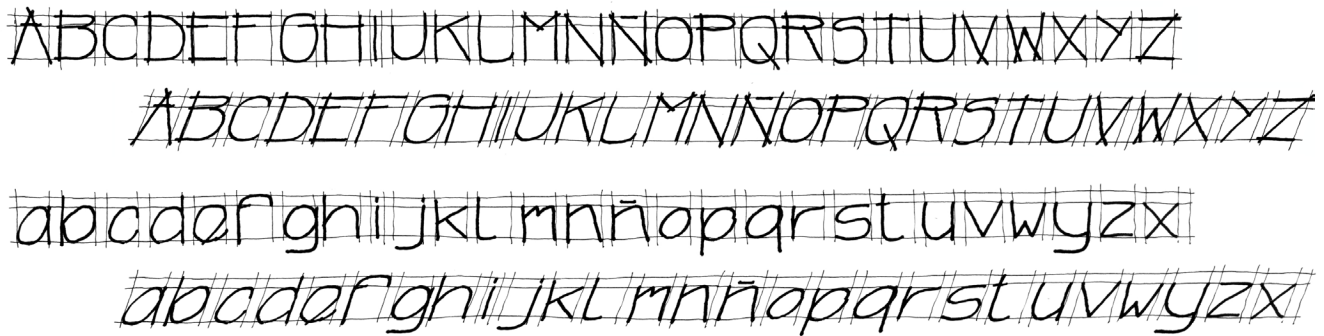 ABCDEFGHIJKLMNÑOPQRSTUVWXYZ
ABCDEFGHIJKLMNÑOPQRSTUVWXYZ
abcdefghijklmnñopqrstuvwyzx
abcdefghijklmnñopqrstuvwyzx